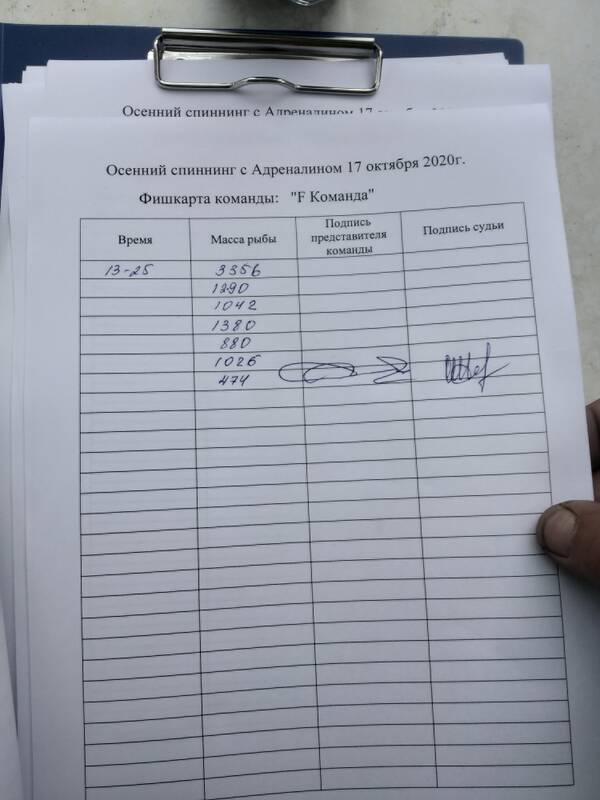 Осенний спиннинг с Адреналином 17
Осенний спиннинг с Адреналином 17 октября 2020г.
Фишкарта команды: "F Команда"
Время Масса рыбы Подпись представителя команды Подпись судьи
13-25 3356
1290
1042
1380
880
1026
474